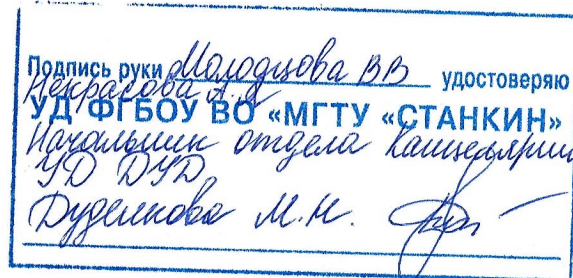 Подпись руки Молодцова ВВ удостоверяю
Некрасова А.
УД ФГБОУ ВО «МГТУ «СТАНКИН»
Начальник отдела Канцелярии
УД ДУД
Дуденкова М.Н.